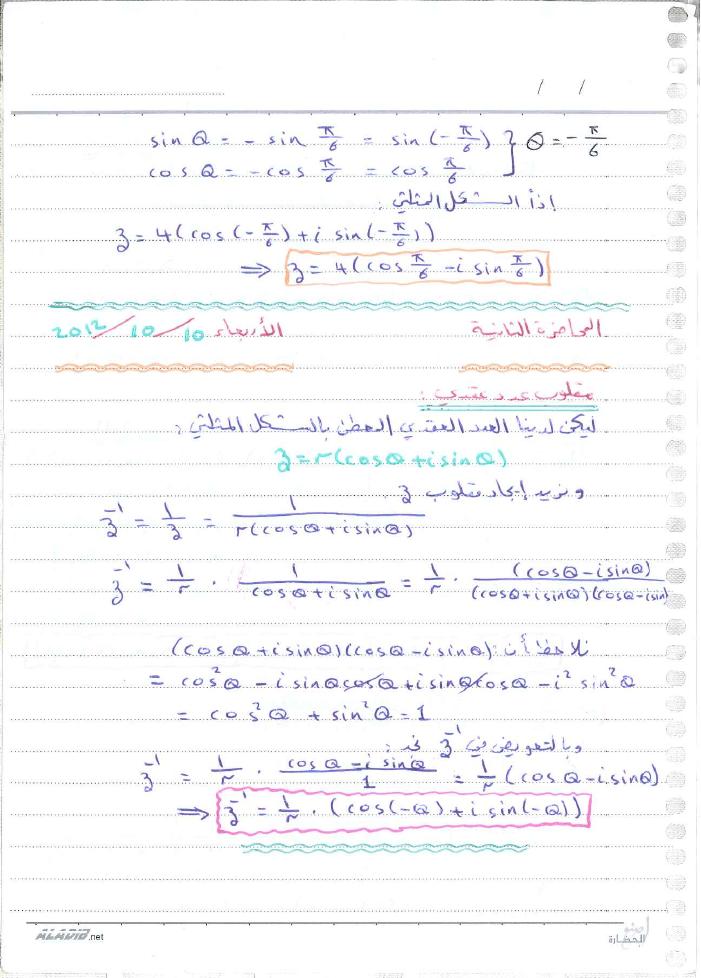 / /
sin θ = - sin π/6 = sin (-π/6) } θ = -π/6
cos θ = -cos π/6 = cos π/6
إذاً الشكل المثلثي :
z = 4 (cos (-π/6) + i sin (-π/6))
⇒ z = 4 (cos π/6 - i sin π/6)
المحاضرة الثانية الأربعاء 10/10/2012
مقلوب عدد عقدي :
ليكن لدينا العدد العقدي المعطى بالشكل المثلثي :
z = r (cosθ + i sinθ)
و نريد إيجاد مقلوب z
z⁻¹ = 1/z = 1/r(cosθ + i sinθ)
z⁻¹ = 1/r · 1/(cosθ + i sinθ) = 1/r · (cosθ - i sinθ)/(cosθ + i sinθ)(cosθ - i sin
نلاحظ أن : (cosθ + i sinθ)(cosθ - i sinθ)
= cos²θ - i sinθ cosθ + i sinθ cosθ - i² sin²θ
= cos²θ + sin²θ = 1
وبالتعويض في z⁻¹ نجد :
z⁻¹ = 1/r · (cosθ - i sinθ)/1 = 1/r (cosθ - i sinθ)
⇒ z⁻¹ = 1/r · (cos(-θ) + i sin(-θ))
ALADIB.net
الحضارة